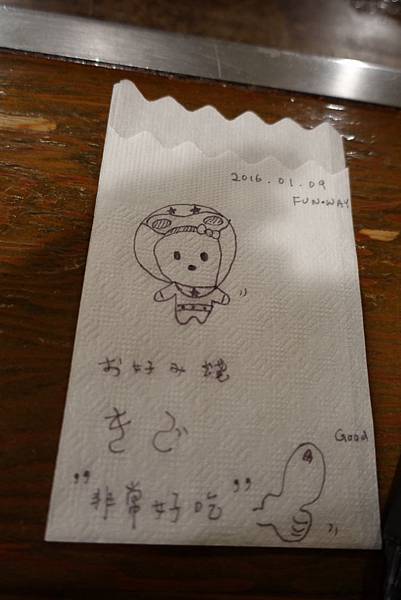 2016.01.09
FUN•WAY
お好み焼
きじ
Good
"非常好吃"